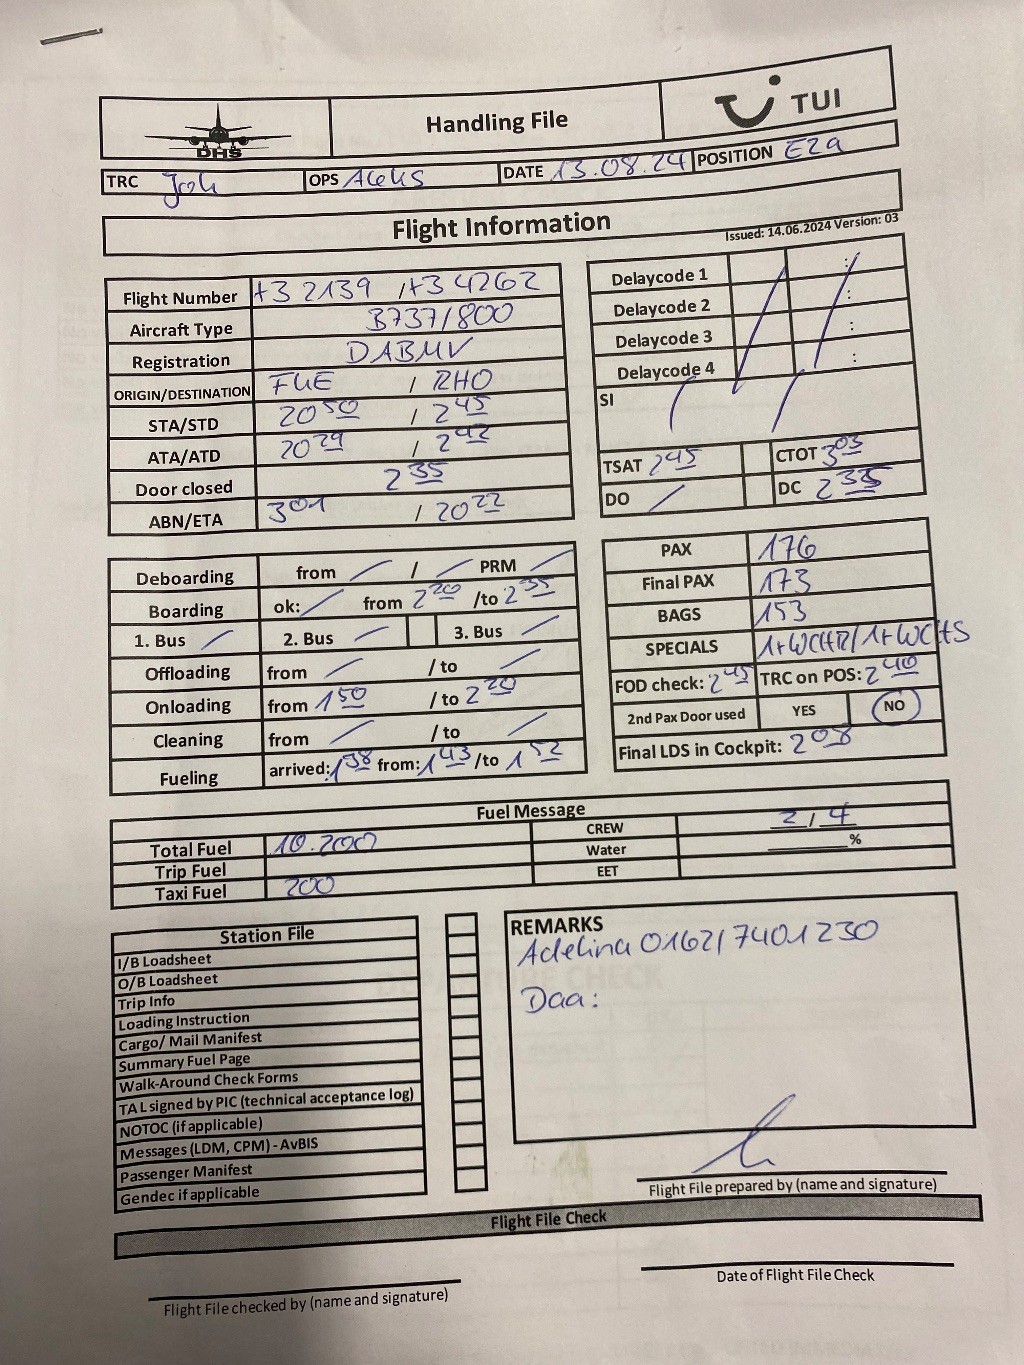 DHS
Handling File
TUI
TRC Joh OPS Aleks DATE 13.08.24 POSITION E29
Flight Information
Issued: 14.06.2024 Version: 03
Flight Number X3 2139 / X3 4262
Aircraft Type B737/800
Registration DABMV
ORIGIN/DESTINATION FUE / RHO
STA/STD 20 50 / 2 45
ATA/ATD 20 29 / 2 42
Door closed 2 35
ABN/ETA 301 / 20 22
Delaycode 1 :
Delaycode 2 :
Delaycode 3 :
Delaycode 4 :
SI
TSAT 2 45 CTOT 3 03
DO / DC 2 35
Deboarding from / PRM
Boarding ok: from 2 20 /to 2 35
1. Bus 2. Bus 3. Bus
Offloading from / to
Onloading from 1 50 / to 2 20
Cleaning from / to
Fueling arrived: 1 38 from: 1 43 /to 1 52
PAX 176
Final PAX 173
BAGS 153
SPECIALS 1+WCHR/1+WCHS
FOD check: 2 45 TRC on POS: 2 40
2nd Pax Door used YES NO
Final LDS in Cockpit: 2 08
Fuel Message
Total Fuel 10.200 CREW 2 / 4
Trip Fuel Water %
Taxi Fuel 200 EET
Station File
I/B Loadsheet
O/B Loadsheet
Trip Info
Loading Instruction
Cargo/ Mail Manifest
Summary Fuel Page
Walk-Around Check Forms
TAL signed by PIC (technical acceptance log)
NOTOC (if applicable)
Messages (LDM, CPM) - AvBIS
Passenger Manifest
Gendec if applicable
REMARKS
Adelina 0162/7401230
Daa:
Flight File prepared by (name and signature)
Flight File Check
Flight File checked by (name and signature)
Date of Flight File Check